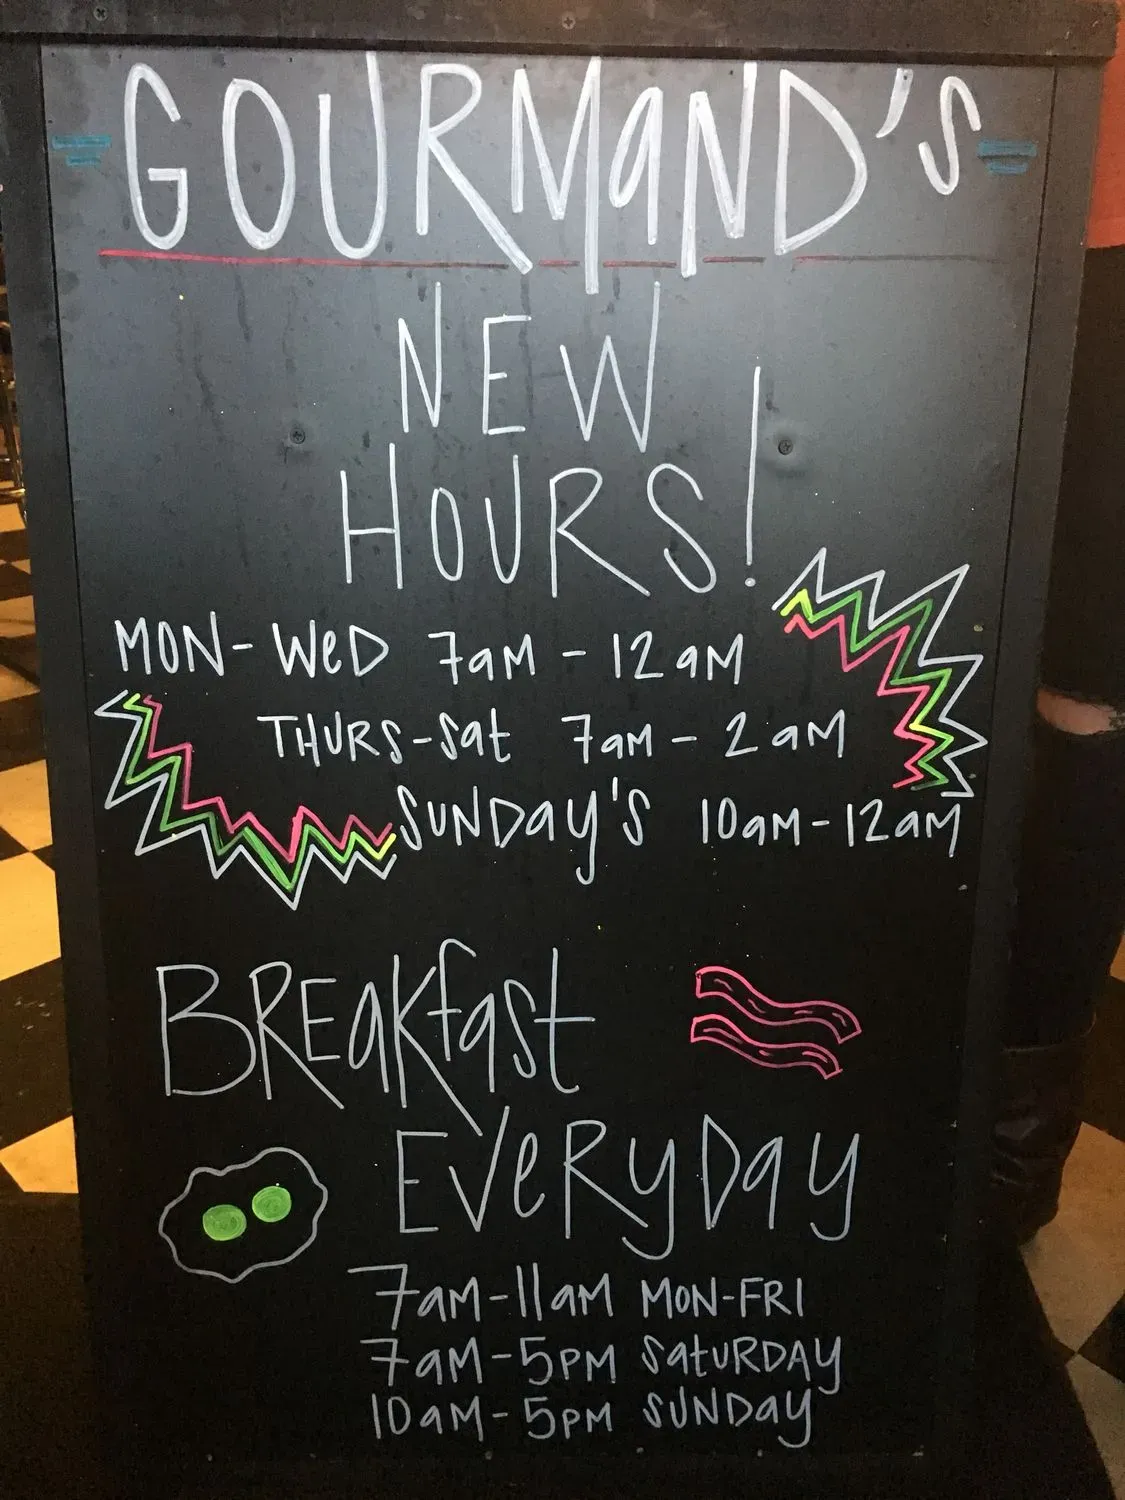 GOURMaND's
NEW
HOURS!
MON-WeD 7aM - 12aM
THURS-Sat 7aM - 2aM
SUNDay's 10aM-12aM
BREaKfast
EVeRyDay
7aM-11aM MON-FRI
7aM-5PM SatURDAy
10aM-5PM SUNDay